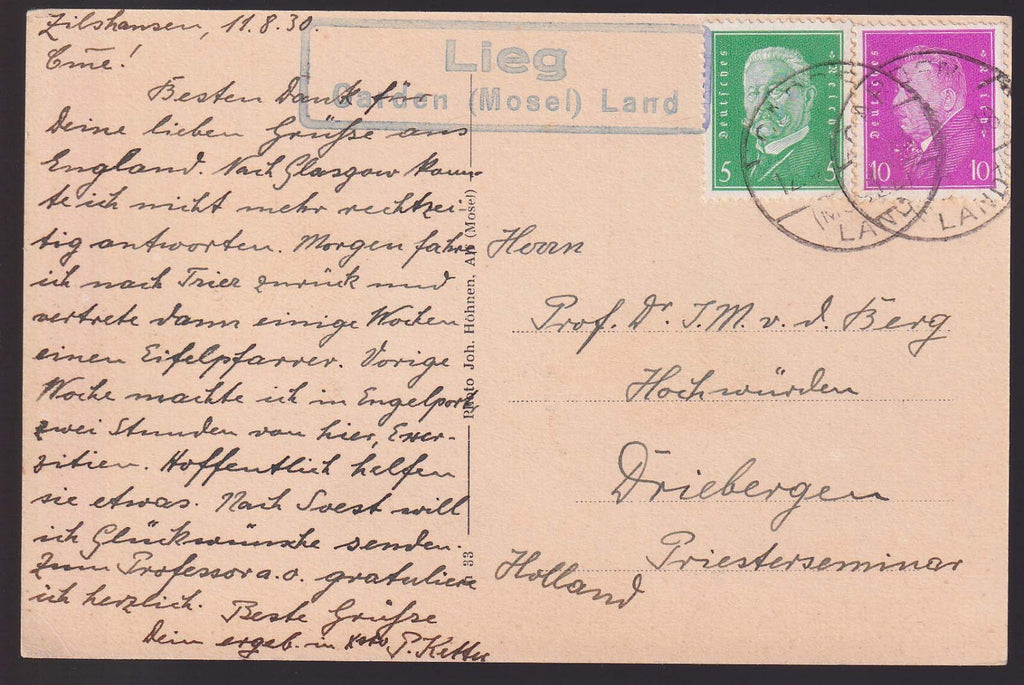 Zilshausen, 11.8.30.
Cme!
Besten Dank für
Deine lieben Grüße aus
England. Nach Glasgow konn-
te ich nicht mehr rechtzei-
tig antworten. Morgen fahre
ich nach Trier zurück und
vertrete dann einige Wochen
einen Eifelpfarrer. Vorige
Woche machte ich in Engelport,
zwei Stunden von hier, Exer-
zitien. Hoffentlich helfen
sie etwas. Nach Soest will
ich Glückwünsche senden.
Zum Professor a.o. gratuliere
ich herzlich. Beste Grüße
Dein ergeb. in P. Ketter
Lieg
Carden (Mosel) Land
Deutsches Reich
5 5
Deutsches Reich
10 10
(MOSEL)
LAND
LAND
33 Photo Joh. Höhnen, Alf (Mosel)
Herrn
Prof. Dr. J. M. v. d. Berg
Hochwürden
Driebergen
Priesterseminar
Holland